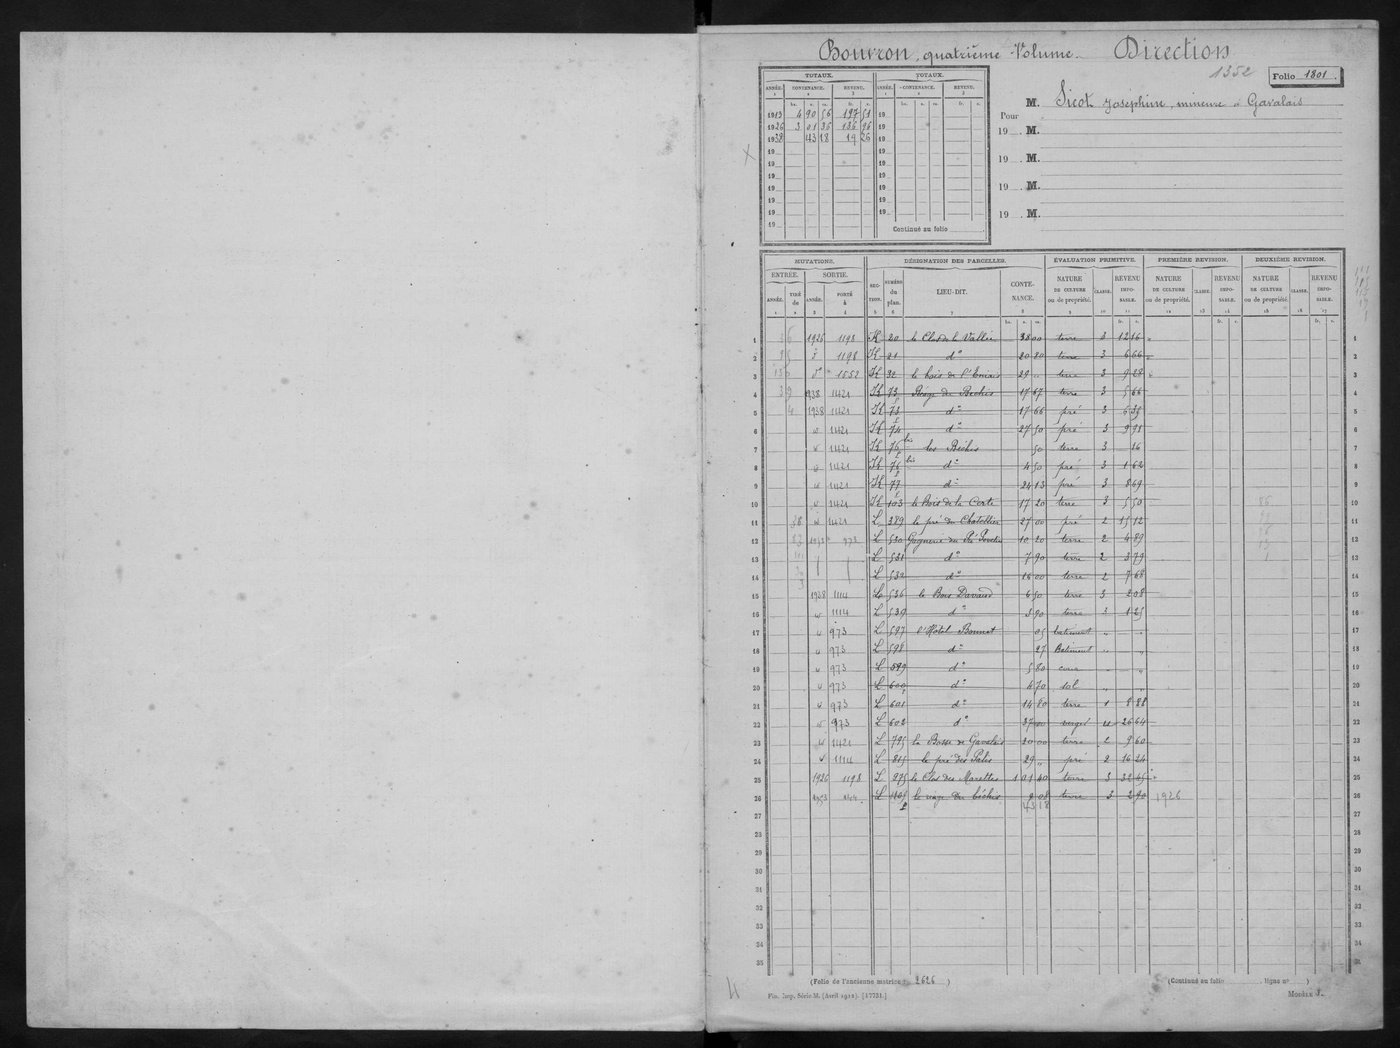 Bouvron, quatrième Volume. Direction
1352
Folio 1301.
TOTAUX. TOTAUX.
ANNÉE. CONTENANCE. REVENU. ANNÉE. CONTENANCE. REVENU.
1 2 3 1 2 3
ha. a. ca. fr. c. ha. a. ca. fr. c.
1913 4 90 56 197 51 19
1926 3 01 36 136 96 19
1938 43 18 19 26 19
19 19
19 19
19 19
19 19
19 19
19 19
19 Continué au folio
Pour
M. Sicot Joséphine, mineure à Gavalais
19 . M.
19 . M.
19 . M.
19 . M.
MUTATIONS. DÉSIGNATION DES PARCELLES. ÉVALUATION PRIMITIVE. PREMIÈRE REVISION. DEUXIÈME REVISION.
ENTRÉE. SORTIE. SECTION. NUMÉRO du plan. LIEU-DIT. CONTENANCE. NATURE DE CULTURE ou de propriété. CLASSE. REVENU IMPOSABLE. NATURE DE CULTURE ou de propriété. CLASSE. REVENU IMPOSABLE. NATURE DE CULTURE ou de propriété. CLASSE. REVENU IMPOSABLE.
ANNÉE. TIRÉ de ANNÉE. PORTÉ à
1 1926 1198 K 20 le Clos de la Vallée 38 00 terre 3 12 16 1
2 d° 1198 K 21 d° 20 80 terre 3 6 66 2
3 d° 1552 K 32 le bois de l'Emais 29 „ terre 3 9 28 3
4 1938 1421 K 73 Piéage des Béches 17 67 terre 3 5 66 4
5 1938 1421 K 73 d° 17 66 pré 3 6 35 5
6 „ 1421 K 74 d° 27 50 pré 3 9 91 6
7 „ 1421 K 76 bis les Béches 50 terre 3 16 7
8 „ 1421 K 76 bis d° 4 50 pré 3 1 62 8
9 „ 1421 K 77 d° 24 13 pré 3 8 69 9
10 „ 1421 K 103 le Bois de la Corte 17 20 terre 3 5 50 10
11 „ 1421 L 389 le pré du Chatellier 27 00 pré 2 15 12 11
12 973 L 530 Gagnerie du Pré 10 20 terre 2 4 89 12
13 L 531 d° 7 90 terre 2 3 79 13
14 L 532 d° 16 00 terre 2 7 68 14
15 1938 1114 L 536 le Bois Davaud 6 50 terre 3 2 08 15
16 „ 1114 L 539 d° 3 90 terre 3 1 25 16
17 „ 973 L 597 l'Hôtel Bonnet 05 batiment „ „ 17
18 „ 973 L 598 d° 27 Batiment „ „ 18
19 „ 973 L 599 d° 5 80 cour „ „ 19
20 „ 973 L 600 d° 4 70 sol „ „ 20
21 „ 973 L 601 d° 14 80 terre 1 8 88 21
22 „ 973 L 602 d° 37 00 verger 22
23 „ 1421 L 795 la Bosse de Gavalais 20 00 terre 2 9 60 23
24 „ 1114 L 815 le pré des Patis 29 „ pré 2 16 24 24
25 1926 1198 L 875 le Clos des Marettes 1 01 40 terre 3 32 45 25
26 1953 L 1105 9 08 terre 3 2 90 1926 26
27 43 18 27
28 28
29 29
30 30
31 31
32 32
33 33
34 34
35 35
(Folio de l'ancienne matrice : 2626 ) (Continué au folio , ligne n° )
Fin. Imp. Série M. (Avril 1912). [17731.] MODÈLE J.